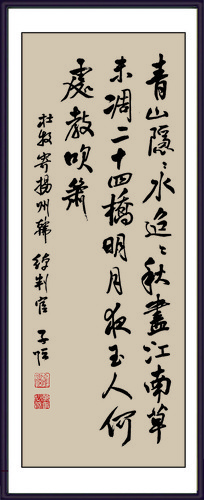 青山隱〻水迢〻秋盡江南草
未凋二十四橋明月夜玉人何
處教吹簫
杜牧寄揚州韓綽判官 子恒